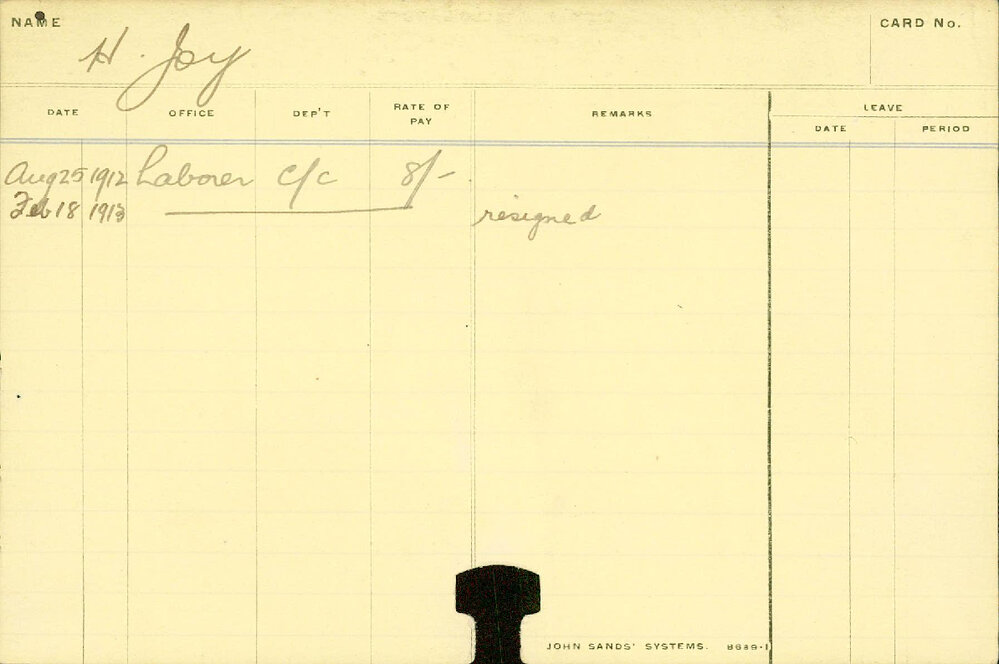 NAME H. Joy CARD No.
DATE OFFICE DEP'T RATE OF PAY REMARKS LEAVE
DATE PERIOD
Aug 25 1912 Laborer c/c 8/-
Feb 18 1913 resigned
JOHN SANDS' SYSTEMS. 8689-1